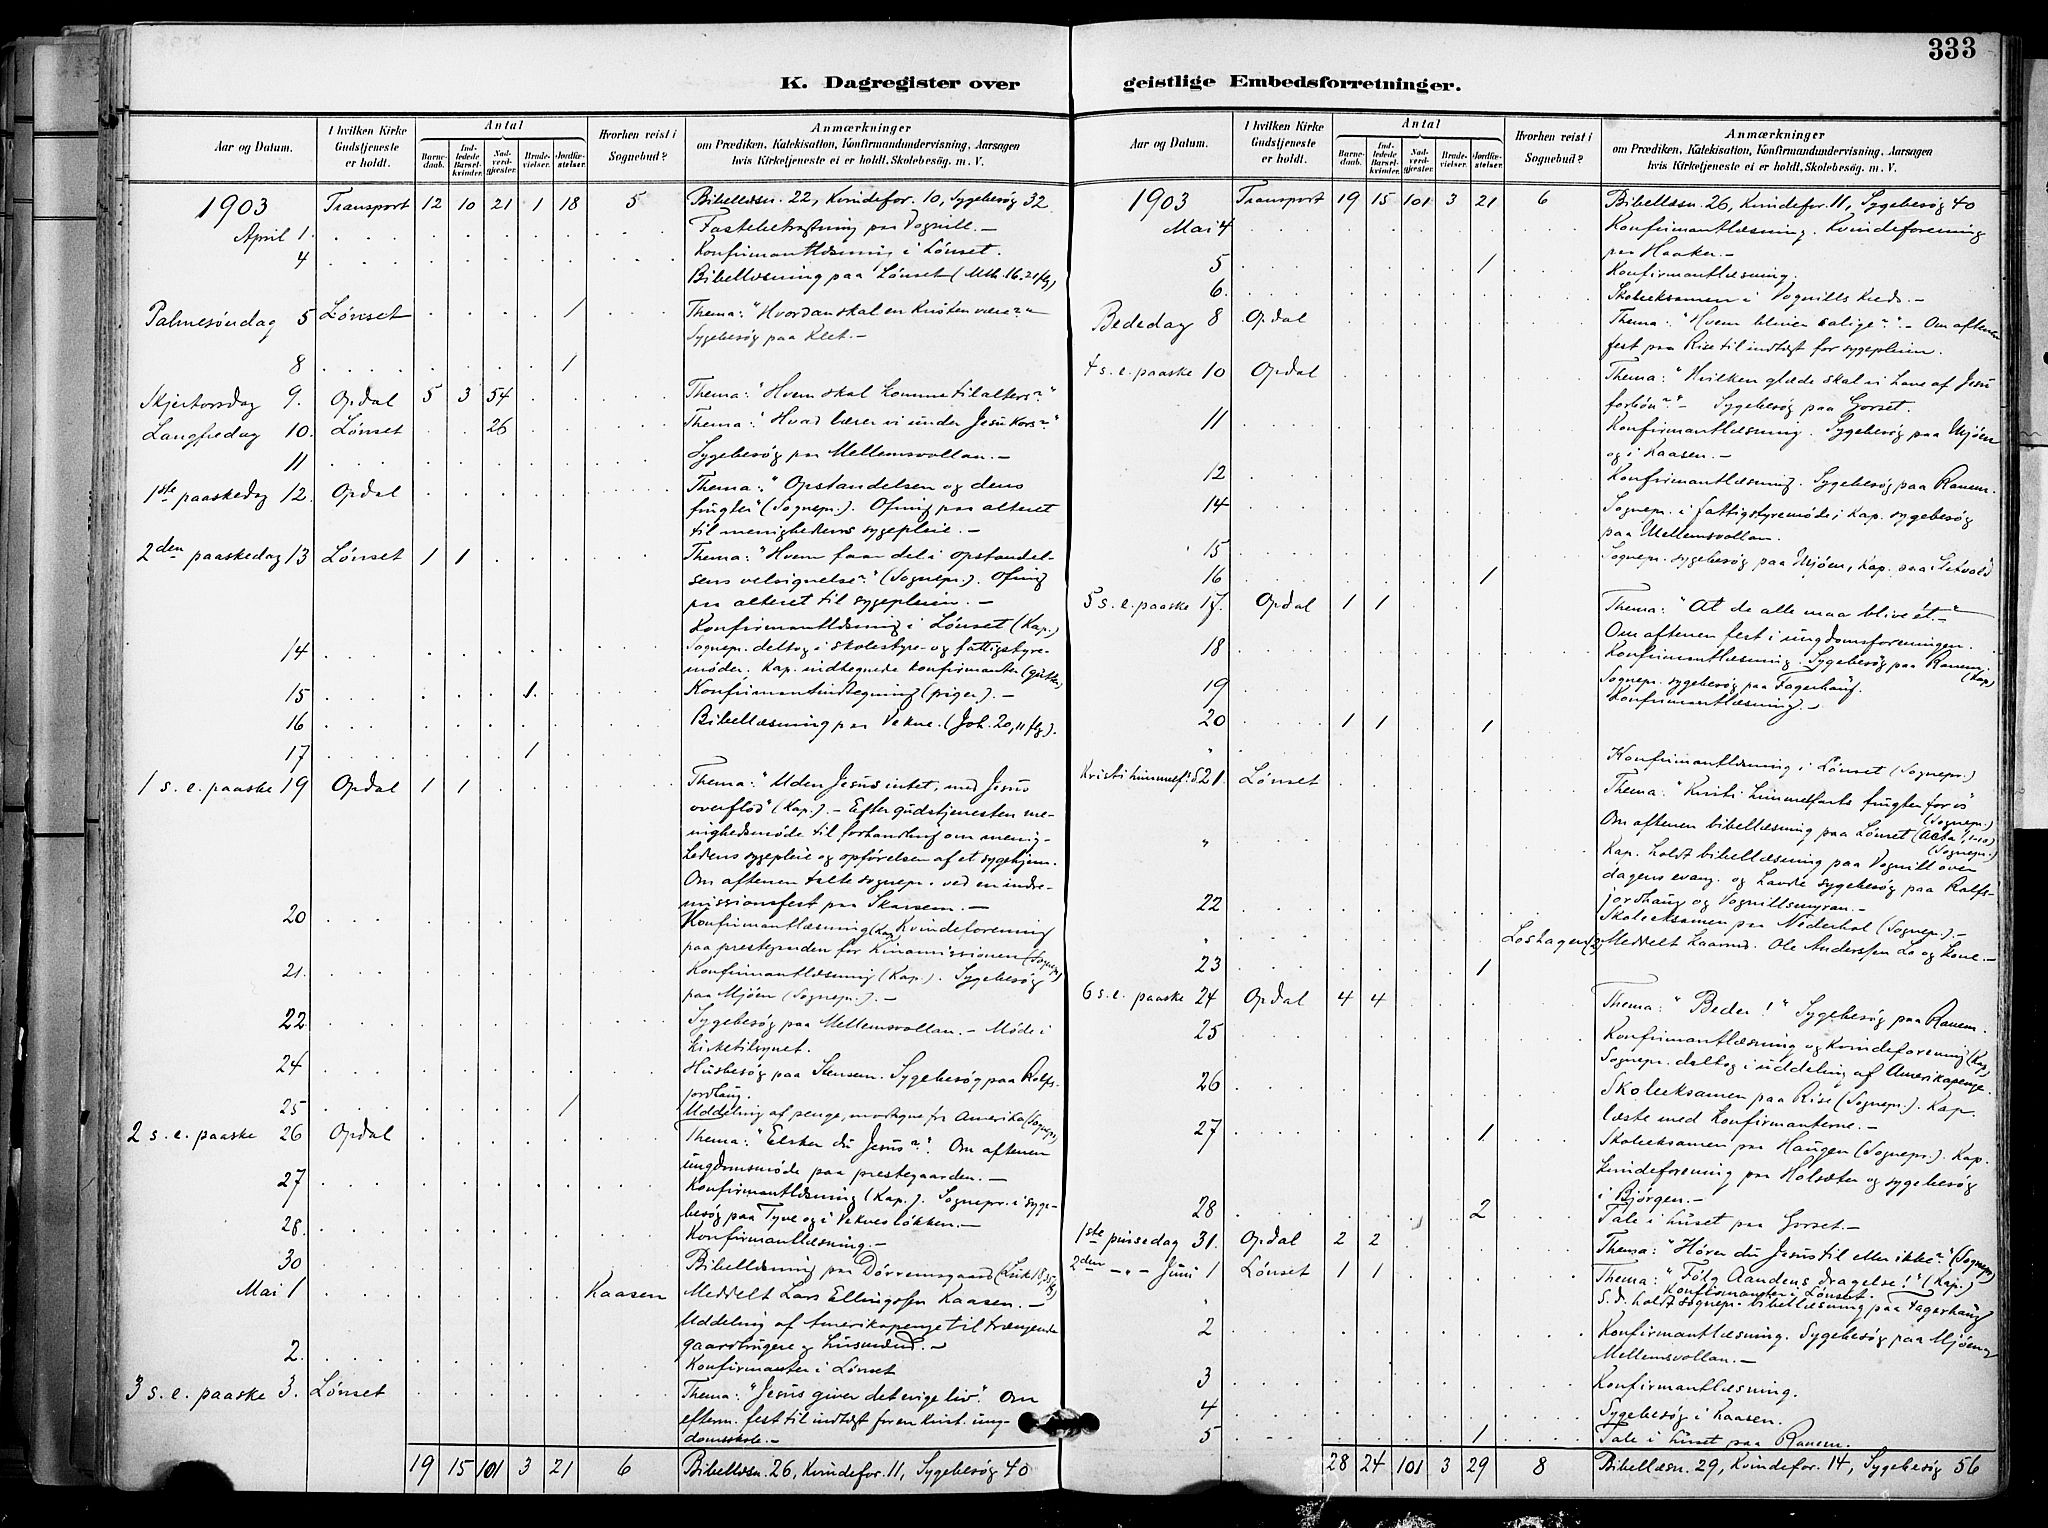 333
K. Dagregister over
geistlige Embedsforretninger.
Aar og Datum.
I hvilken Kirke Gudstjeneste er holdt.
Antal
Barne-daab.
Ind-ledede Barsel-kvinder.
Nad-verd-gjester.
Brude-vielser.
Jordfæ-stelser.
Hvorhen reist i Sognebud?
Anmærkninger
om Prædiken, Katekisation, Konfirmandundervisning, Aarsagen
hvis Kirketjeneste ei er holdt, Skolebesøg. m. V.
1903 Transport 12 10 21 1 18 5 Bibellæsn. 22, Kvindefor. 10, Sygebesøg 32
April 1. Fastebetragtning paa Vognill. –
4 Konfirmantlæsning i Lønset.
Bibellæsning paa Lønset (Mth. 16. 21 flg)
Palmesøndag 5 Lønset 1 Thema: "Hvordan skal en kristen være?"
Sygebesøg paa Klet. –
8 1
Skjertorsdag 9. Opdal 5 3 54 Thema: "Hvem skal komme til alters?"
Langfredag 10. Lønset 26 Thema: "Hvad lærer vi under Jesu kors?"
11 Sygebesøg paa Mellemsvollan. –
1ste paaskedag 12. Opdal Thema: "Opstandelsen og dens
frugter" (Sognepr.). Ofring paa alteret
til menighedens sygepleie. –
2den paaskedag 13 Lønset 1 1 Thema: "Hvem faar del i opstandel-
sens velsignelse?" (Sognepr.). Ofring
paa alteret til sygepleien. –
Konfirmantlæsning i Lønset (Kap.)
14 Sognepr. deltog i skolestyre- og fattigstyre-
møder. Kap. indtegnede konfirmanter (gutter)
15 1. Konfirmantindtegning (piger). –
16 Bibellæsning paa Vekve. (Joh. 20, 11 flg.).
17 1
1 s. e. paaske 19 Opdal 1 1 Thema: "Uden Jesus intet, med Jesus
overflod" (Kap.) – Efter gudstjenesten me-
nighedsmøde til forhandling om menig-
hedens sygepleie og opførelsen af et sygehjem.
Om aftenen talte sognepr. ved en indre-
missionsfest paa Skarsem. –
20 Konfirmantlæsning (Kap) Kvindeforening
paa prestegaarden for Kinamissionen (Sognepr)
21. Konfirmantlæsning (Kap.). Sygebesøg
paa Mjøen (Sognepr.). –
22 Sygebesøg paa Mellemsvollan. – Møde i
kirketilsynet.
24 Husbesøg paa Stensem. Sygebesøg paa Rolfs-
jordhaug.
25 1 Uddeling af penge, modtagne fra Amerika (Sognepr)
2 s. e. paaske 26 Opdal Thema: "Elsker du Jesus?". Om aftenen
ungdomsmøde paa prestegaarden. –
27 Konfirmantlæsning (Kap.). Sognepr. i syge-
besøg paa Tyve og i Vekvesløkken. –
28. Konfirmantlæsning. –
30 Bibellæsning paa Dørremsgaard (Luk 18, 35 flg)
Mai 1 Kaasen Meddelt Lars Ellingsen Kaasen. –
Uddeling af Amerikapenge til trængende
gaardbrugere og husmænd. –
2. Konfirmanter i Lønset
3 s. e. paaske 3. Lønset Thema: "Jesus giver det evige liv". Om
efterm. fest til indtægt for en krist. ung-
domsskole. –
19 15 101 3 21 6 Bibellæsn. 26, Kvindefor. 11, Sygebesøg 40
Aar og Datum.
I hvilken Kirke Gudstjeneste er holdt.
Antal
Barne-daab.
Ind-ledede Barsel-kvinder.
Nad-verd-gjester.
Brude-vielser.
Jordfæ-stelser.
Hvorhen reist i Sognebud?
Anmærkninger
om Prædiken, Katekisation, Konfirmandundervisning, Aarsagen
hvis Kirketjeneste ei er holdt, Skolebesøg. m. V.
1903 Transport 19 15 101 3 21 6 Bibellæsn. 26, Kvindefor. 11, Sygebesøg 40
Mai 4 Konfirmantlæsning. Kvindeforening
paa Haaker. –
5 1 Konfirmantlæsning.
6. Skoleeksamen i Vognills kreds. –
Bededag 8 Opdal Thema: "Hvem bliver salige?". – Om aftenen
fest paa Rise til indtægt for sygepleien.
4 s. e. paaske 10 Opdal Thema: "Hvilken glæde skal vi have af Jesu
forbøn?" – Sygebesøg paa Gorset.
11 Konfirmantlæsning. Sygebesøg paa Mjøen
og i Kaasen. –
12 Konfirmantlæsning. Sygebesøg paa Ranem.
14 Sognepr. i fattigstyremøde; Kap. sygebesøg
paa Mellemsvollan.
15 Sognepr. sygebesøg paa Mjøen, Kap. paa Sletvold
16 1
5 s. e. paaske 17. Opdal 1 1 Thema: "At de alle maa blive ét." –
Om aftenen fest i ungdomsforeningen.
18 Konfirmantlæsning. Sygebesøg paa Ranem. (Kap)
19 Sognepr. sygebesøg paa Fagerhaug.
20 1 1 1 Konfirmantlæsning. –
" Konfirmantlæsning i Lønset (Sognepr.)
Kristi himmelf. d. 21. Lønset Thema: "Kristi himmelfarts frugter for os" (Sognepr.)
Om aftenen bibellæsning paa Lønset (Acta 1, 1-10) (Sognepr.)
" Kap. holdt bibellæsning paa Vognill over
dagens evang. og havde sygebesøg paa Rolfs-
jordhaug og Vognillsmyran. –
22 Skoleeksamen paa Nederhol (Sognepr.) –
" Loshagen (2) Meddelt Laarmd. Ole Anderssen Lo og kone. –
23 1
6 s. e. paaske 24 Opdal 4 4 Thema: "Beder!" Sygebesøg paa Ranem.
25 Konfirmantlæsning og Kvindeforening (Kap)
Sognepr. deltog i uddeling af Amerikapenge.
26 Skoleeksamen paa Rise (Sognepr.). Kap.
læste med konfirmanterne. –
27 1 Skoleeksamen paa Haugen (Sognepr.). Kap.
kvindeforening paa Holsæter og sygebesøg
i Bjørgen. –
28 2 Tale i huset paa Gorset. –
1ste pinsedag 31. Opdal 2 2 Thema: "Hører du Jesus til eller ikke?" (Sognepr)
2den –"– Juni 1 Lønset 1 1 Thema: "Følg Aandens dragelse!" (Kap.)
Konfirmanter i Lønset.
S. d. holdt sognepr. bibellæsning paa Fagerhaug
2 Konfirmantlæsning. Sygebesøg paa Mjøen og
Mellemsvollan. –
3 Konfirmantlæsning.
4 Sygebesøg i Kaasen.
5 1 Tale i huset paa Ranem.
28 24 101 3 29 8 Bibellæsn. 29, Kvindefor. 14, Sygebesøg 56